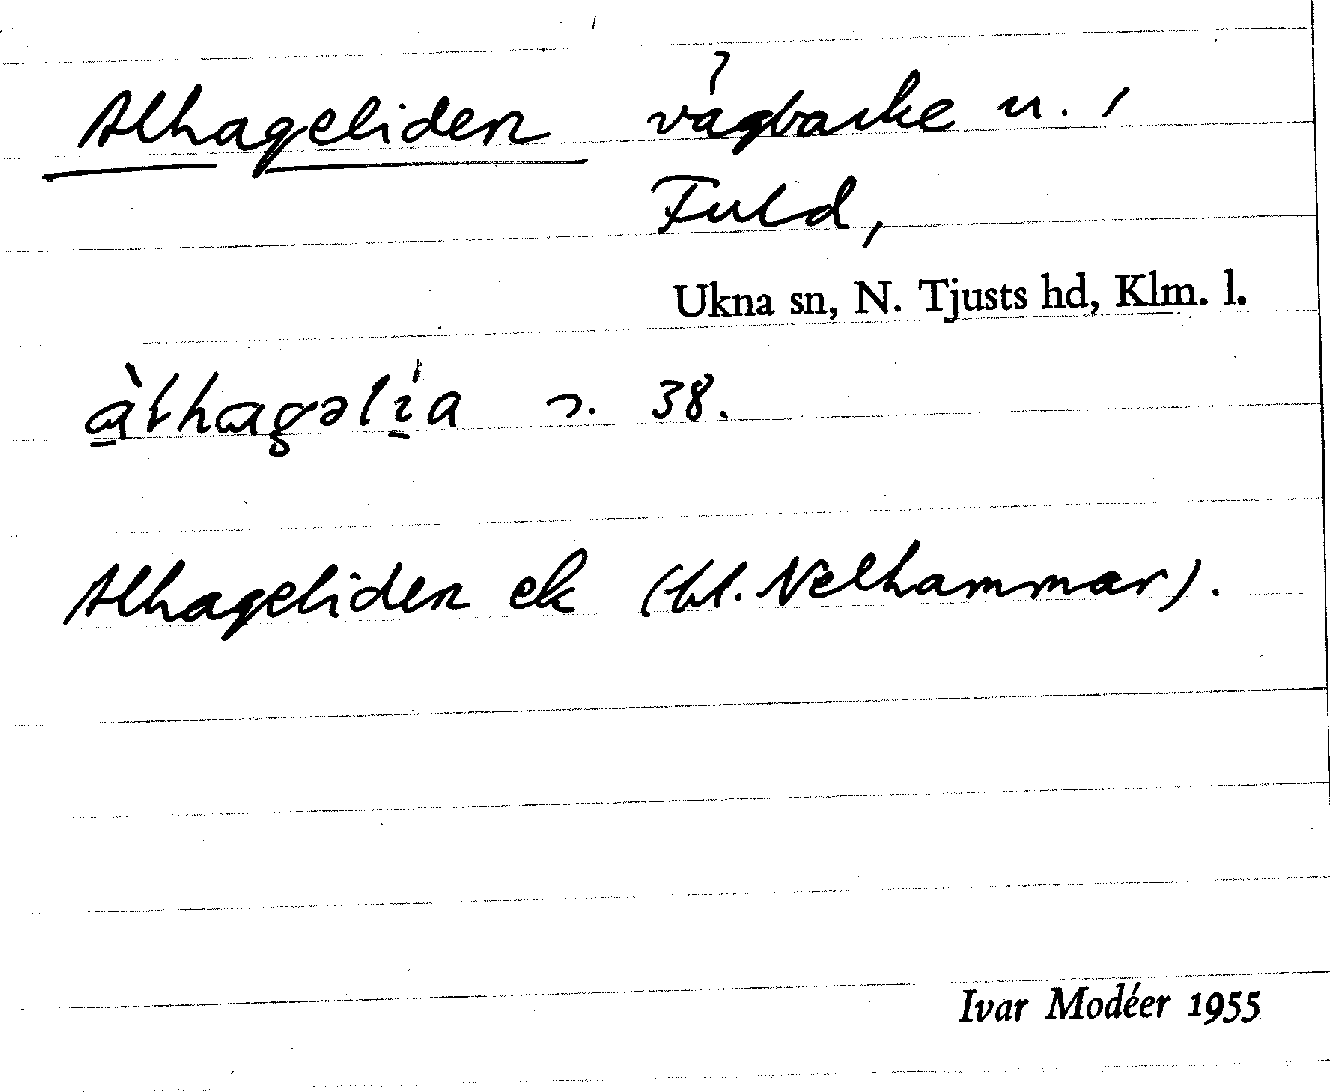 Alhageliden vägbacke u. 1
Fuld,
Ukna sn, N. Tjusts hd, Klm. l.
àlhagəlía s. 38.
Alhageliden ek (bl. Nelhammar).
Ivar Modéer 1955